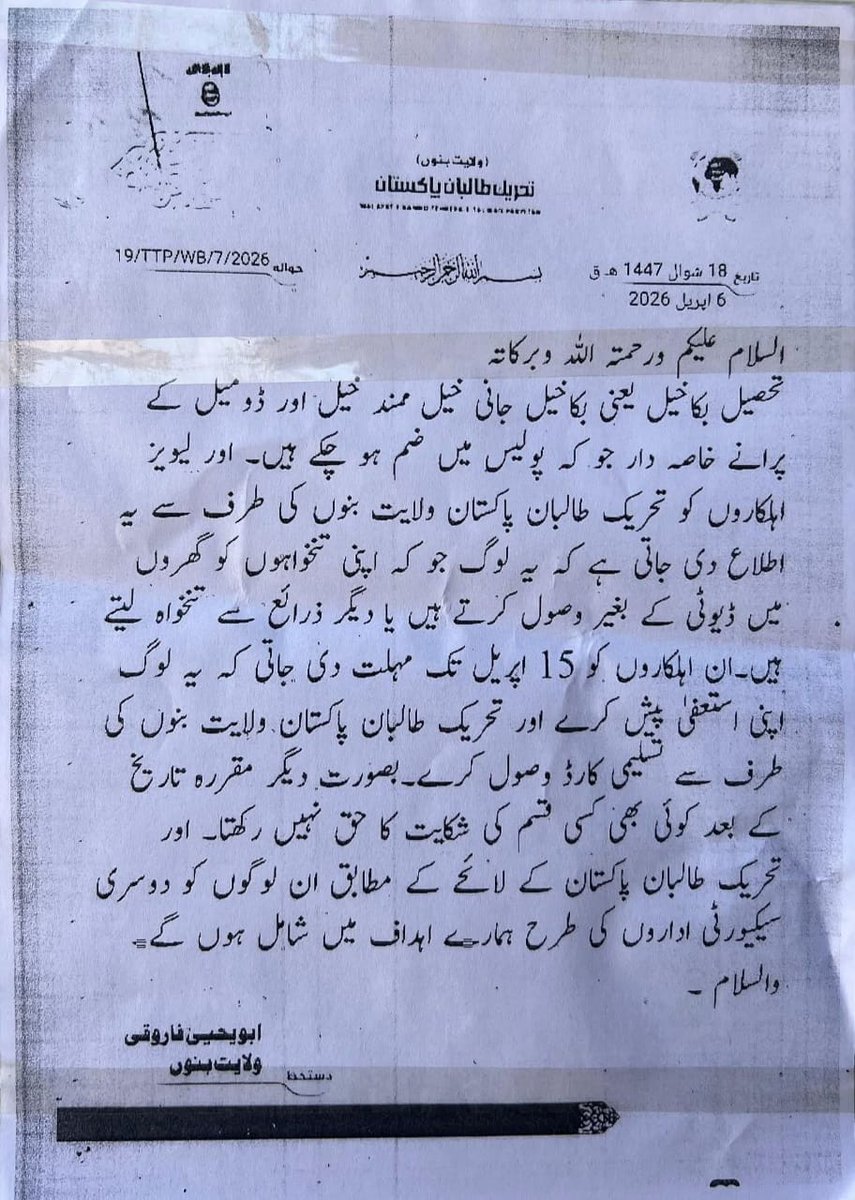 (ولایت بنوں)
تحریک طالبان پاکستان
حوالہ 19/TTP/WB/7/2026
بسم اللہ الرحمن الرحیم
تاریخ 18 شوال 1447 ھ ق
6 اپریل 2026
السلام علیکم ورحمتہ اللہ وبرکاتہ
تحصیل بکاخیل یعنی بکاخیل جانی خیل ممند خیل اور ڈومیل کے
پرانے خاصہ دار جو کہ پولیس میں ضم ہو چکے ہیں۔ اور لیویز
اہلکاروں کو تحریک طالبان پاکستان ولایت بنوں کی طرف سے یہ
اطلاع دی جاتی ہے کہ یہ لوگ جو کہ اپنی تنخواہوں کو گھروں
میں ڈیوٹی کے بغیر وصول کرتے ہیں یا دیگر ذرائع سے تنخواہ لیتے
ہیں۔ان اہلکاروں کو 15 اپریل تک مہلت دی جاتی کہ یہ لوگ
اپنی استعفیٰ پیش کرے اور تحریک طالبان پاکستان ولایت بنوں کی
طرف سے تسلیمی کارڈ وصول کرے۔بصورت دیگر مقررہ تاریخ
کے بعد کوئی بھی کسی قسم کی شکایت کا حق نہیں رکھتا۔ اور
تحریک طالبان پاکستان کے لائحے کے مطابق ان لوگوں کو دوسری
سیکیورٹی اداروں کی طرح ہمارے اہداف میں شامل ہوں گے۔
والسلام ۔
ابو یحییٰ فاروقی
ولایت بنوں
دستخط